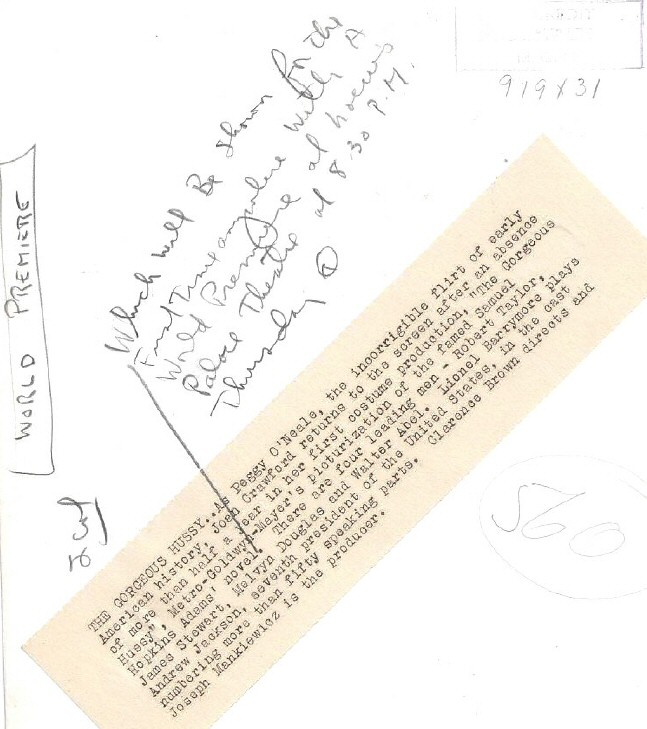 919X31
Which will Be shown for the
First Time anywhere with A
World Premiere at Loew's
Palace Theatre at 8 30 P.M.
Thursday
WORLD PREMIERE
THE GORGEOUS HUSSY..As Peggy O'Neale, the incorrigible flirt of early
American history, Joan Crawford returns to the screen after an absence
of more than half a year in her first costume production, "The Gorgeous
Hussy", Metro-Goldwyn-Mayer's picturization of the famed Samuel
Hopkins Adams' novel. There are four leading men - Robert Taylor,
James Stewart, Melvyn Douglas and Walter Abel. Lionel Barrymore plays
Andrew Jackson, seventh president of the United States, in the cast
numbering more than fifty speaking parts. Clarence Brown directs and
Joseph Mankiewicz is the producer.
560